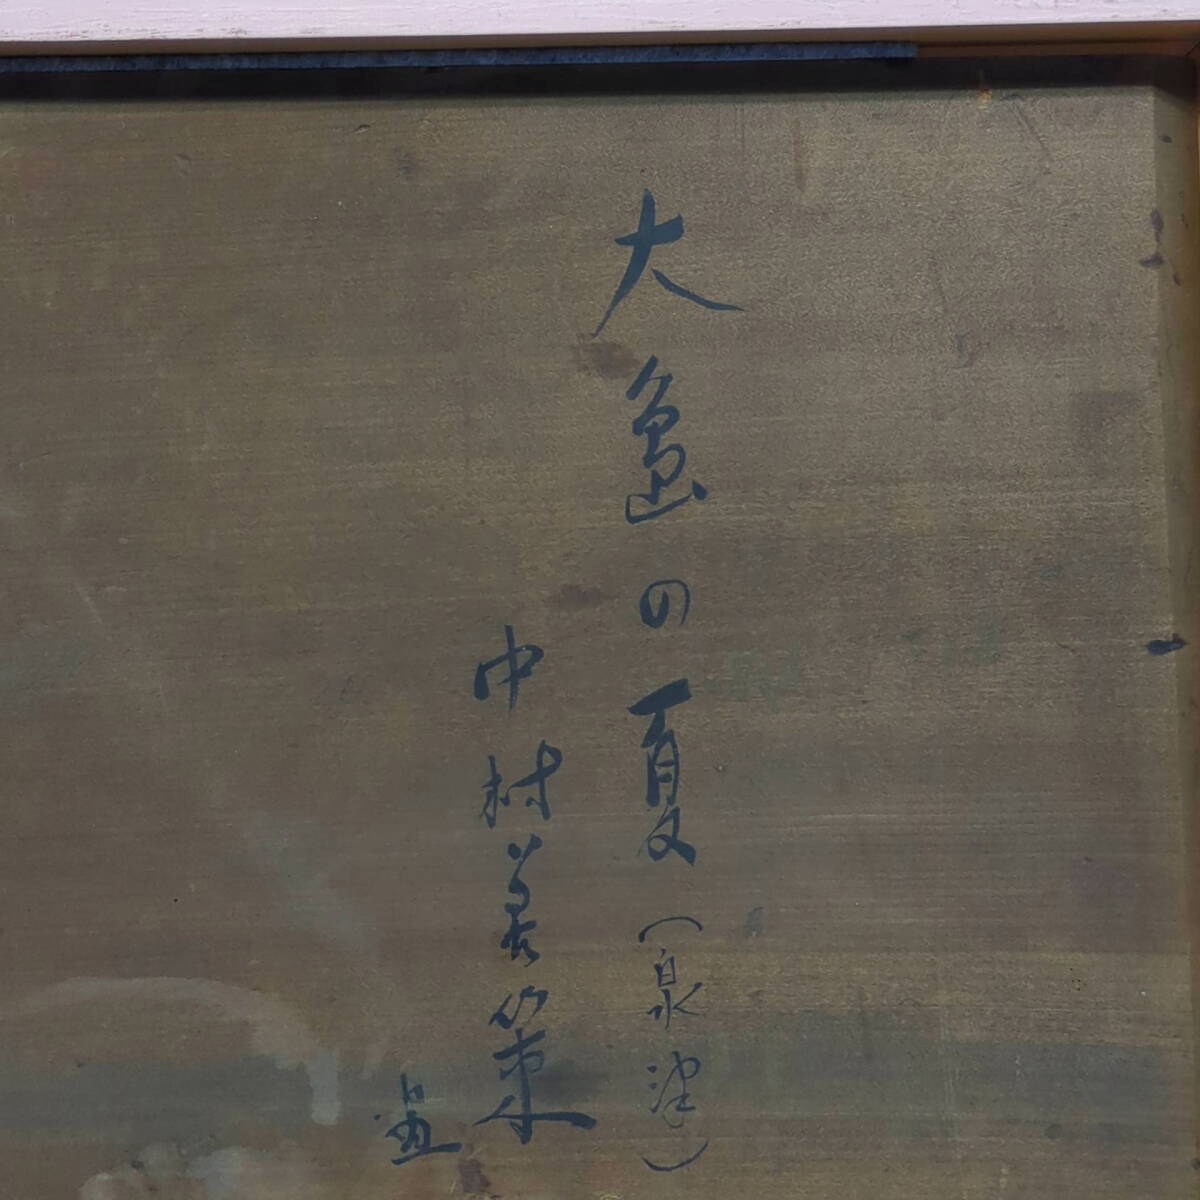 大島の夏(泉津)
中村善策
画